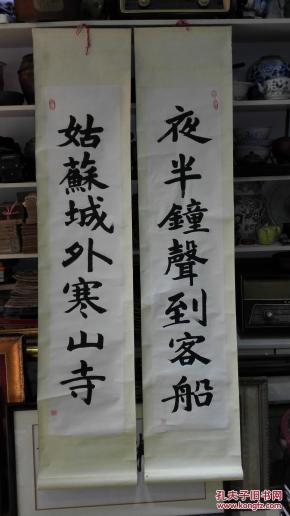 夜半鐘聲到客船
姑蘇城外寒山寺
孔夫子旧书网
www.kongfz.com